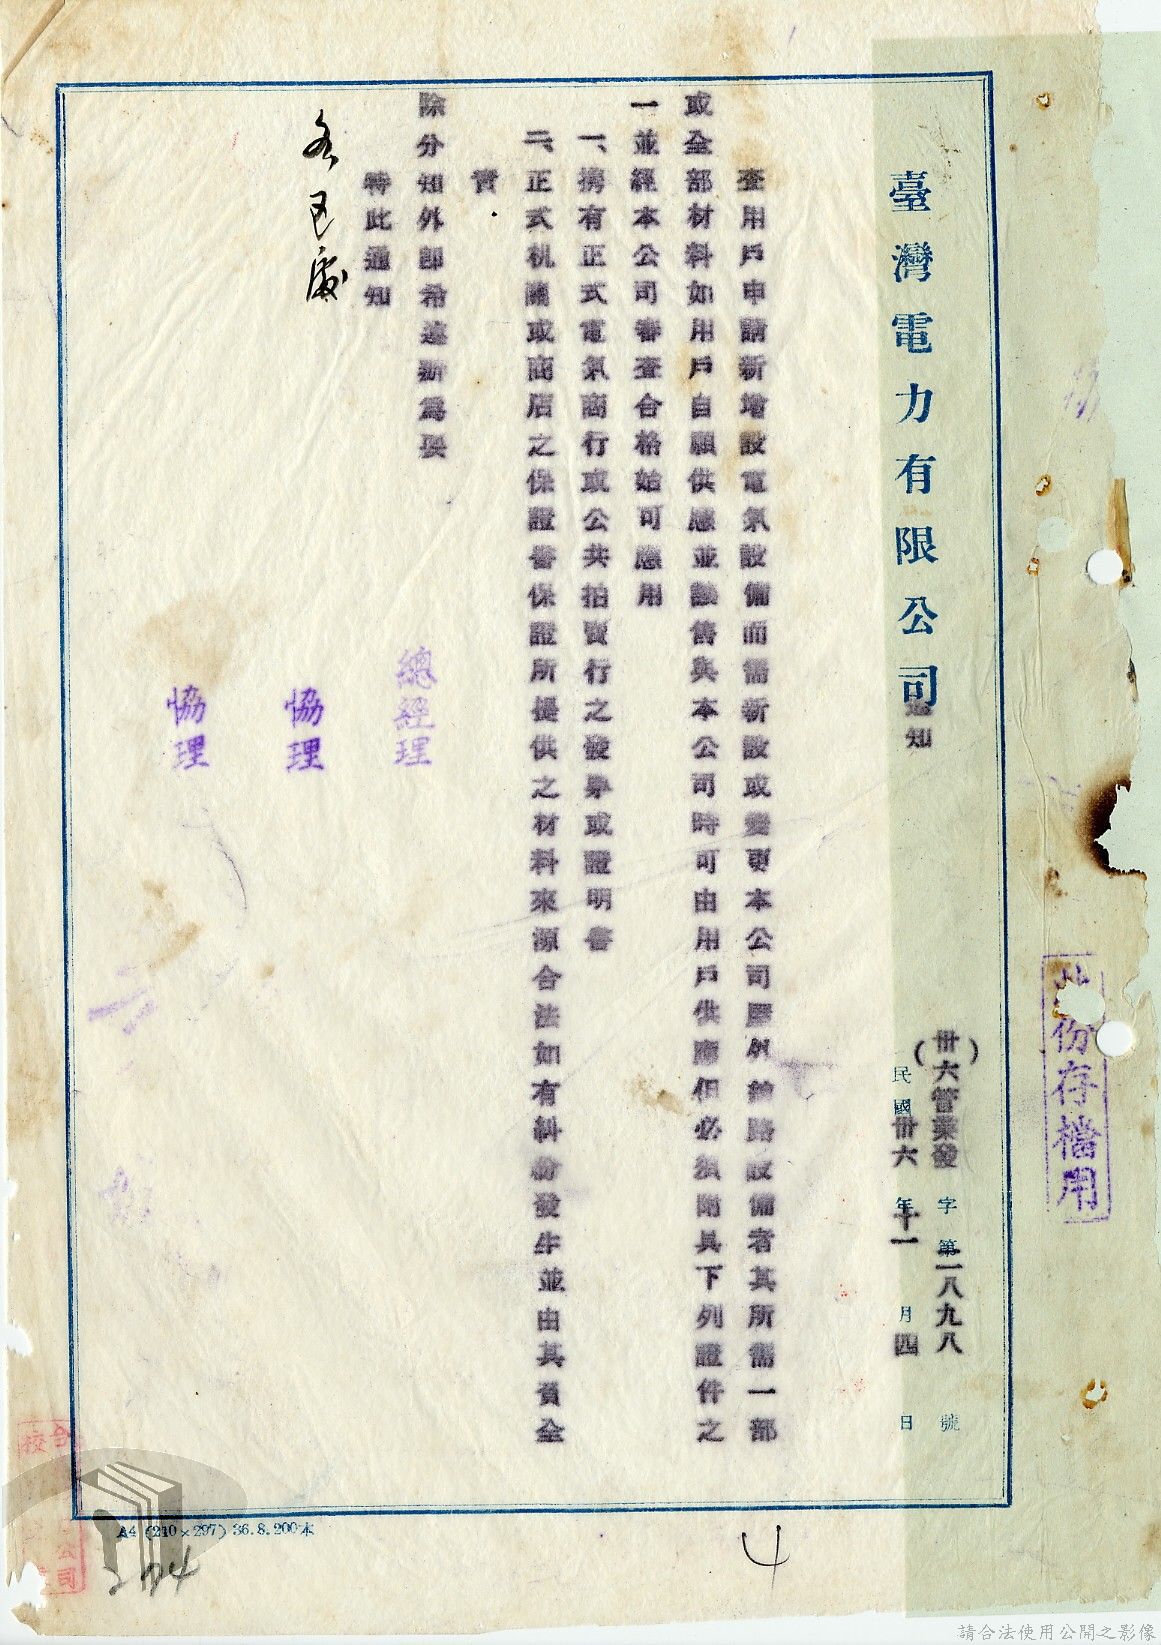 臺灣電力有限公司通知
(卅六)管業發字第一八九八號
民國卅六年十一月四日
查用戶申請新增設電氣設備而需新設或變更本公司屋外線路設備者其所需一部
或全部材料如用戶自願供應並讓售與本公司時可由用戶供應但必須附具下列證件之
一並經本公司審查合格始可應用
一、擕有正式電氣商行或公共拍賣行之發票或證明書
二、正式机關或商店之保證書保證所提供之材料來源合法如有糾紛發生並由其負全
責.
除分知外即希遵辦為要
特此通知
總經理
協理
協理
份存檔用
A4 (210×297) 36.8.200本
4
請合法使用公開之影像